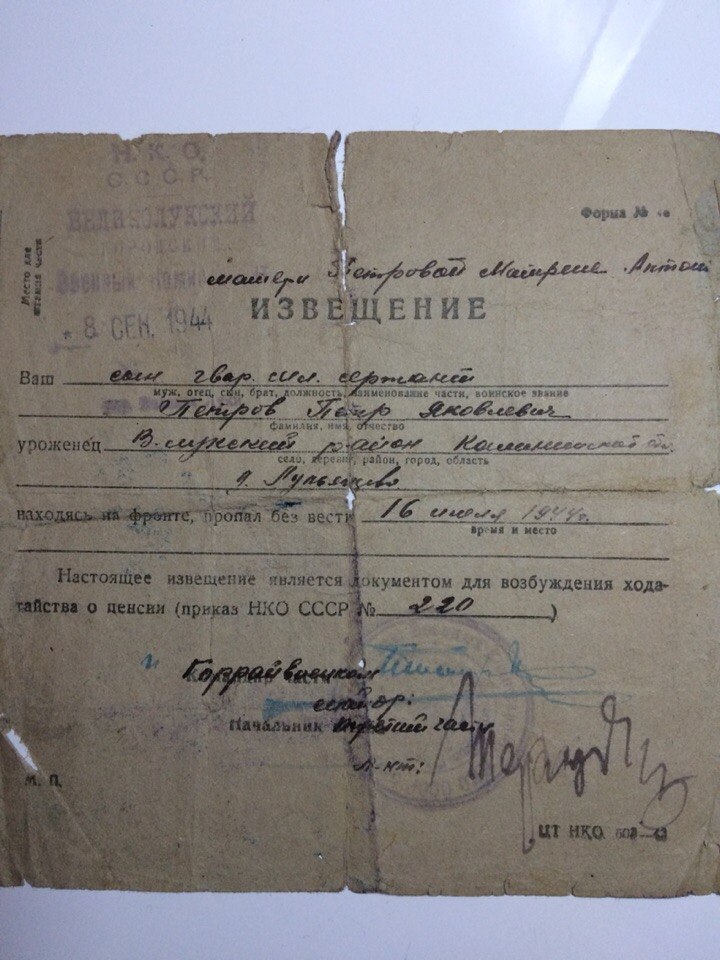 Н.К.О.
С.С.С.Р.
ВЕЛИКОЛУКСКИЙ
ГОРОДСКИЙ
Военный
8 СЕН. 1944
Форма №
Место для
штампа части
матери Петровой Матрене Антон
ИЗВЕЩЕНИЕ
Ваш сын гвар. мл. сержант
муж, отец, сын, брат, должность, наименование части, воинское звание
Петров Петр Яковлевич
фамилия, имя, отчество
уроженец В-лукский район Калининской обл.
село, деревня, район, город, область
д.
находясь на фронте, пропал без вести 16 июля 1944г.
время и место
Настоящее извещение является документом для возбуждения хода-
тайства о пенсии (приказ НКО СССР № 220 )
Горрайвоенком
майор:
Начальник третий части
л-нт:
М. П.
ЦТ НКО